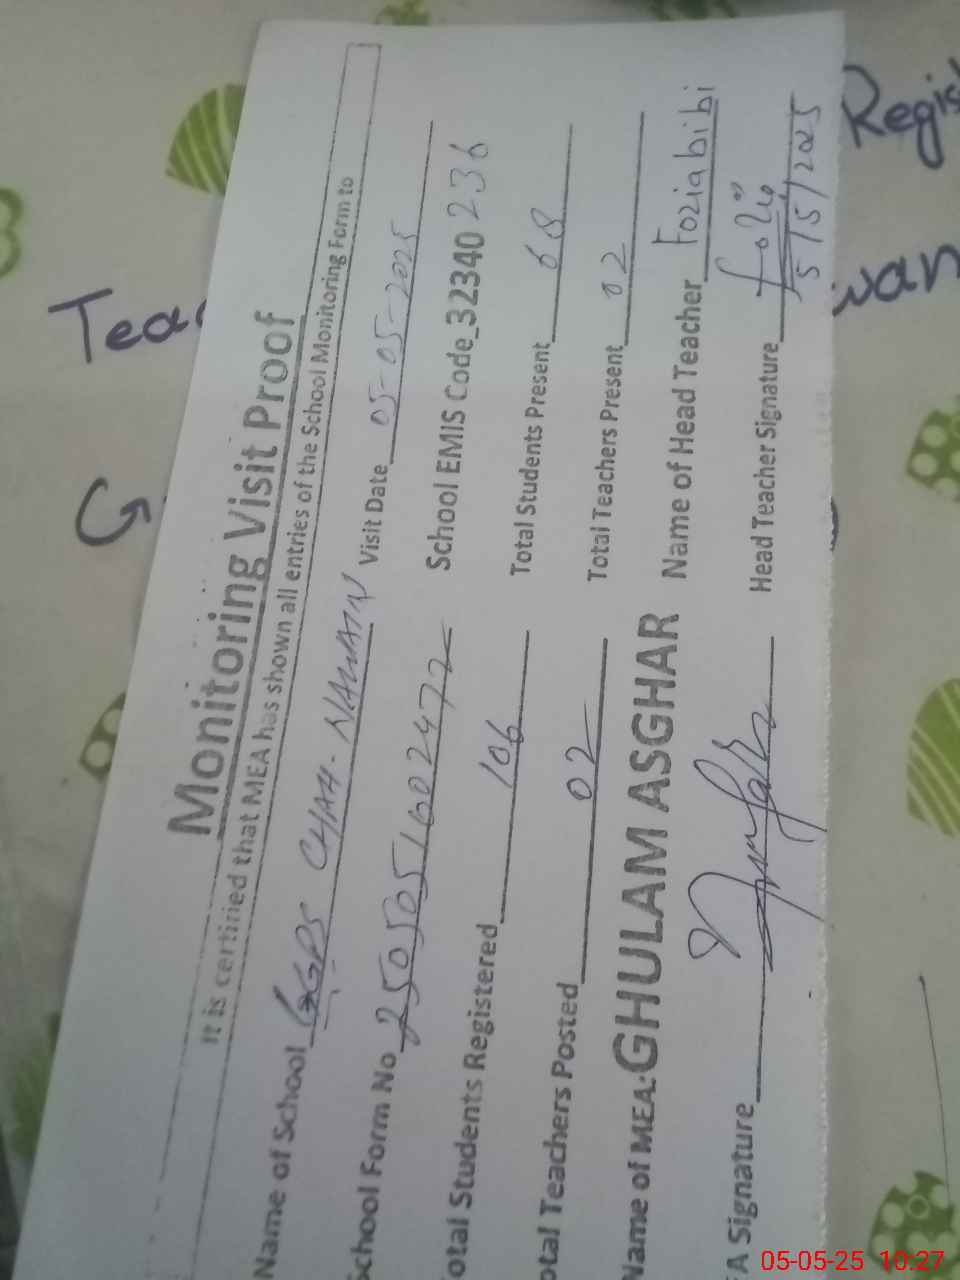 Monitoring Visit Proof
It is certified that MEA has shown all entries of the School Monitoring Form to
Name of School GGPS CHAH-NAWAIN Visit Date 05-05-2025
School Form No 2505051602472 School EMIS Code_32340 236
Total Students Registered 106 Total Students Present 68
Total Teachers Posted 02 Total Teachers Present 02
Name of MEA. GHULAM ASGHAR Name of Head Teacher Foziabibi
A Signature Head Teacher Signature
5/5/2025
Tea
Regis
wan
G
05-05-25 10:27